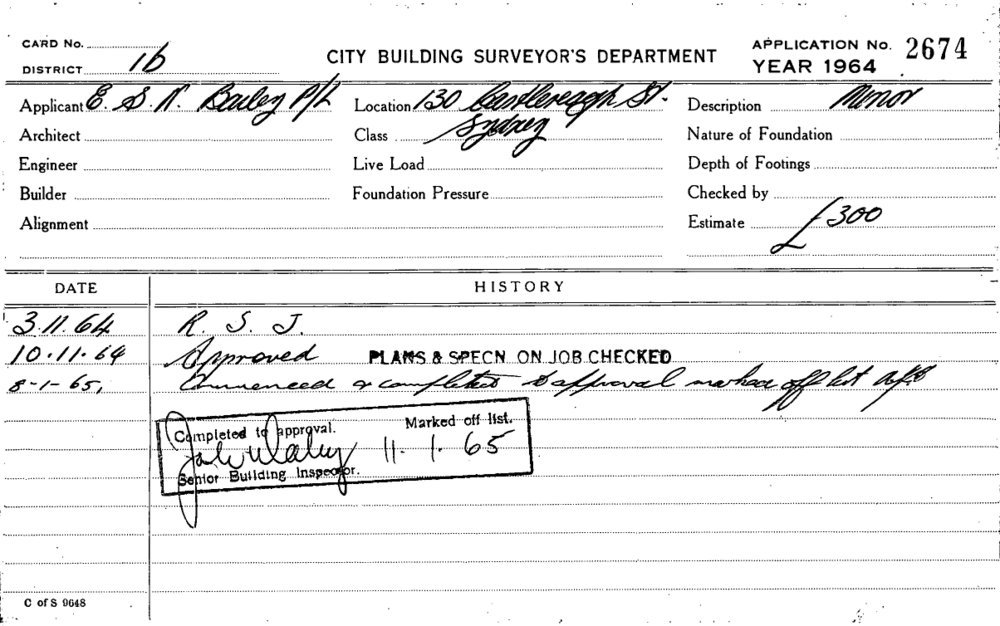 CARD No.
DISTRICT 1b
CITY BUILDING SURVEYOR'S DEPARTMENT
APPLICATION No. 2674
YEAR 1964
Applicant E. S. N. Bailey P/L
Location 130 Castlereagh St.
Sydney
Description Minor
Architect
Class
Nature of Foundation
Engineer
Live Load
Depth of Footings
Builder
Foundation Pressure
Checked by
Alignment
Estimate £300
DATE HISTORY
3.11.64 R. S. J.
10.11.64 Approved PLANS & SPECN ON JOB CHECKED
8-1-65, Commenced & completed to approval marked off list
Completed to approval. Marked off list.
11.1.65
Senior Building Inspector.
C of S 9648